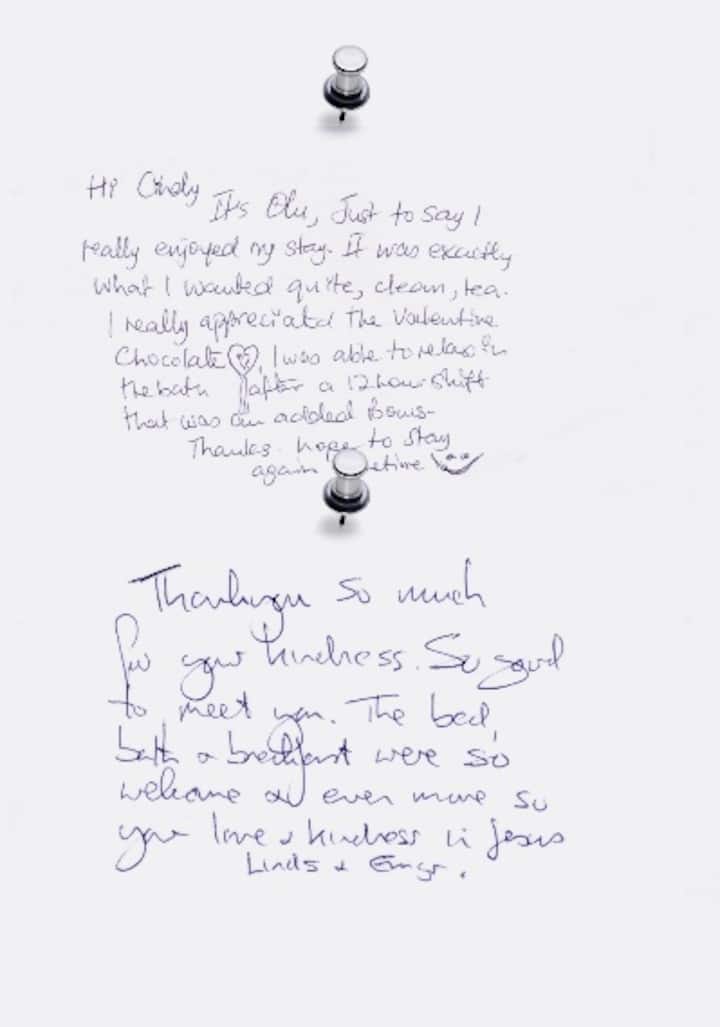 Hi Cindy
It's Olu, Just to say I
really enjoyed my stay. It was exactly
what I wanted quite, clean, tea.
I really appreciated the Valentine
Chocolate, I was able to relax in
the bath after a 12 hour shift
that was an added Bonus-
Thanks. hope to stay
again etime
Thankyou so much
for your kindness. So good
to meet you. The bed,
bath & breakfast were so
welcome and even more so
your love & kindness in Jesus
Linds &